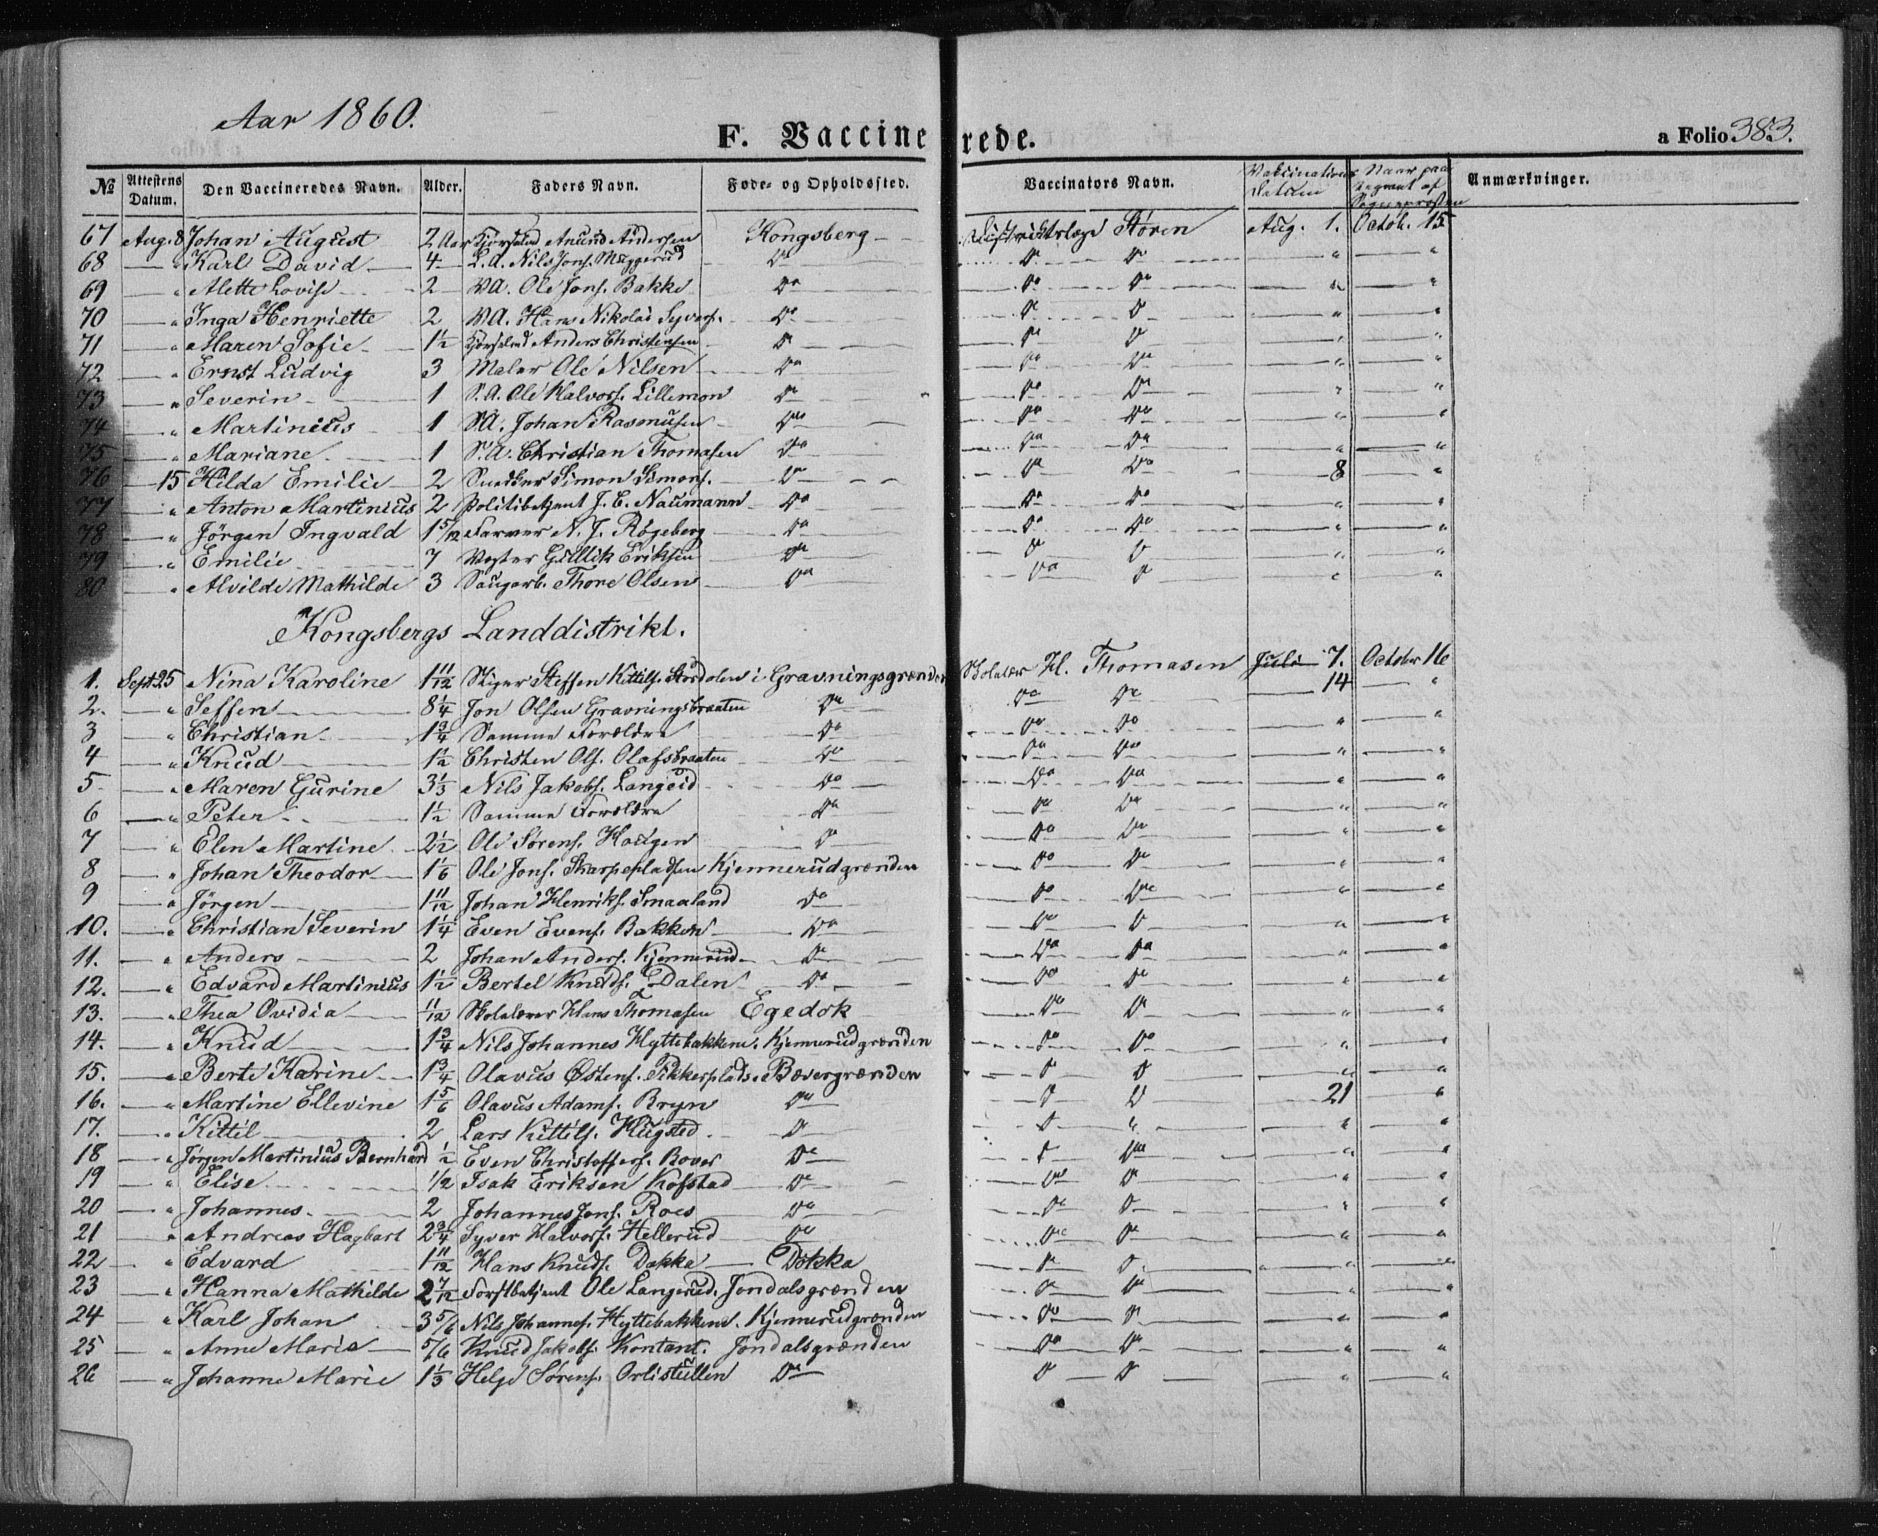 Aar 1860.
F. Vaccinerede.
a Folio 383.
No Attestens Datum. Den Vaccineredes Navn. Alder. Faders Navn. Føde- og Opholdssted. Vaccinators Navn. Vaccinations Datum Naar paategnet af Sognepræsten Anmærkninger.
67 Aug. 8 Johan August 2 Aar Anund Andersen Kongsberg Districtslæge Støren Aug. 1. Octob. 15
68 — " Karl David 4 L. d. Nils Jons. Do Do Do " "
69 — " Alette Lovise 2 Ole Jons. Bakke Do Do Do " "
70 — " Inga Henriette 2 Hans Nikolai Syvers. Do Do Do " "
71 — " Maren Sofie 1½ Anders Christensen Do Do Do " "
72 — " Ernst Ludvig 3 Maler Ole Nilsen Do Do Do " "
73 — " Severin 1 S. A. Ole Halvors. Lillemon Do Do Do " "
74 — " Martinius 1 S.A. Johan Rasmusen Do Do Do " "
75 — " Mariane 1 S. A. Christian Thomasen Do Do Do " "
76 — 15 Hilda Emilie 2 Snedker Simon Simons. Do Do Do 8 "
77 — " Anton Martinius 2 Politibetjent J. E. Naumann Do Do Do " "
78 — " Jörgen Ingvald 1 5/12 Farver N. J. Rögeberg Do Do Do " "
79 — " Emilie 7 Gullik Eriksen Do Do Do " "
80 — " Alvilde Mathilde 3 Saugarb. Thore Olsen Do Do Do " "
Kongsbergs Landdistrikt.
1. Sept 25 Nina Karoline 1 11/12 Stiger Steffen Kittils. i Gravningsgrænden Skolelær H. Thomasen Juli 7. October 16
2. — " Seffen 8¼ Jon Olsen Gravningsbraaten Do Do Do — 14 — "
3 — " Christian 1¾ Samme Forældre Do Do Do " — "
4 — " Knud 1½ Christen Ols. Olafsbraaten Do Do Do " — "
5. — " Maren Gurine 3⅓ Nils Jakobs. Langeid Do Do Do " — "
6 — " Peter 1½ Samme Forældre Do Do Do " — "
7 — " Elen Martine 2½ Ole Sørens. Haugen Do Do Do " — "
8 — " Johan Theodor 1⅙ Ole Jons. Skarpepladsen Kjennerudgrænden Do Do " — "
9 — " Jörgen 1 11/12 Johan Henriks. Smaaland Do Do Do " — "
10. — " Christian Severin 1¼ Even Evens. Bakken Do Do Do " — "
11. — " Anders 2 Johan Anders. Kjennerud Do Do Do " — "
12. — " Edvard Martinius 1½ Bertel Knuds. Dalen Do Do Do " — "
13. — " Thea Ovidia 11/12 Skolelærer Hans Thomasen Egedok Do Do " — "
14. — " Knud 1¾ Nils Johannes Hyttebakken. Kjennerudgrænden Do Do " — "
15. — " Berte Karine 1¾ Olavus Østens. Pikkerplads. Bævergrænden Do Do " — "
16. — " Martine Ellevine 1⅚ Olavus Adams. Bryn Do Do Do — 21 — "
17. — " Kittil 2 Lars Kittils. Hugsted Do Do " " — "
18 — " Jørgen Martinius Bernhard ½ Even Christoffers. Bover Do Do Do " — "
19 — " Elise 1/2 Isak Eriksen Kofstad Do Do Do " — "
20 — " Johannes 2 Johannes Jons. Roes Do Do Do " — "
21 — " Andreas Hagbart 2¾ Syver Halvors. Hellerud Do Do Do " — "
22 — " Edvard 1 11/12 Hans Knuds. Dokka Dokka Do Do " — "
23 — " Hanna Mathilde 2 7/12 Forstbetjent Ole Langerud. Jondalsgrænden Do Do " — "
24 — " Karl Johan 3 5/6 Nils Johannes. Hyttebakken. Kjennerudgrænden Do Do " — "
25 — " Anne Marie 5/6 Knud Jakobs. Kontant. Jondalsgrænden Do Do " — "
26 — " Johanne Marie 1⅓ Helge Sørens. Orlistullen Do Do Do " — "